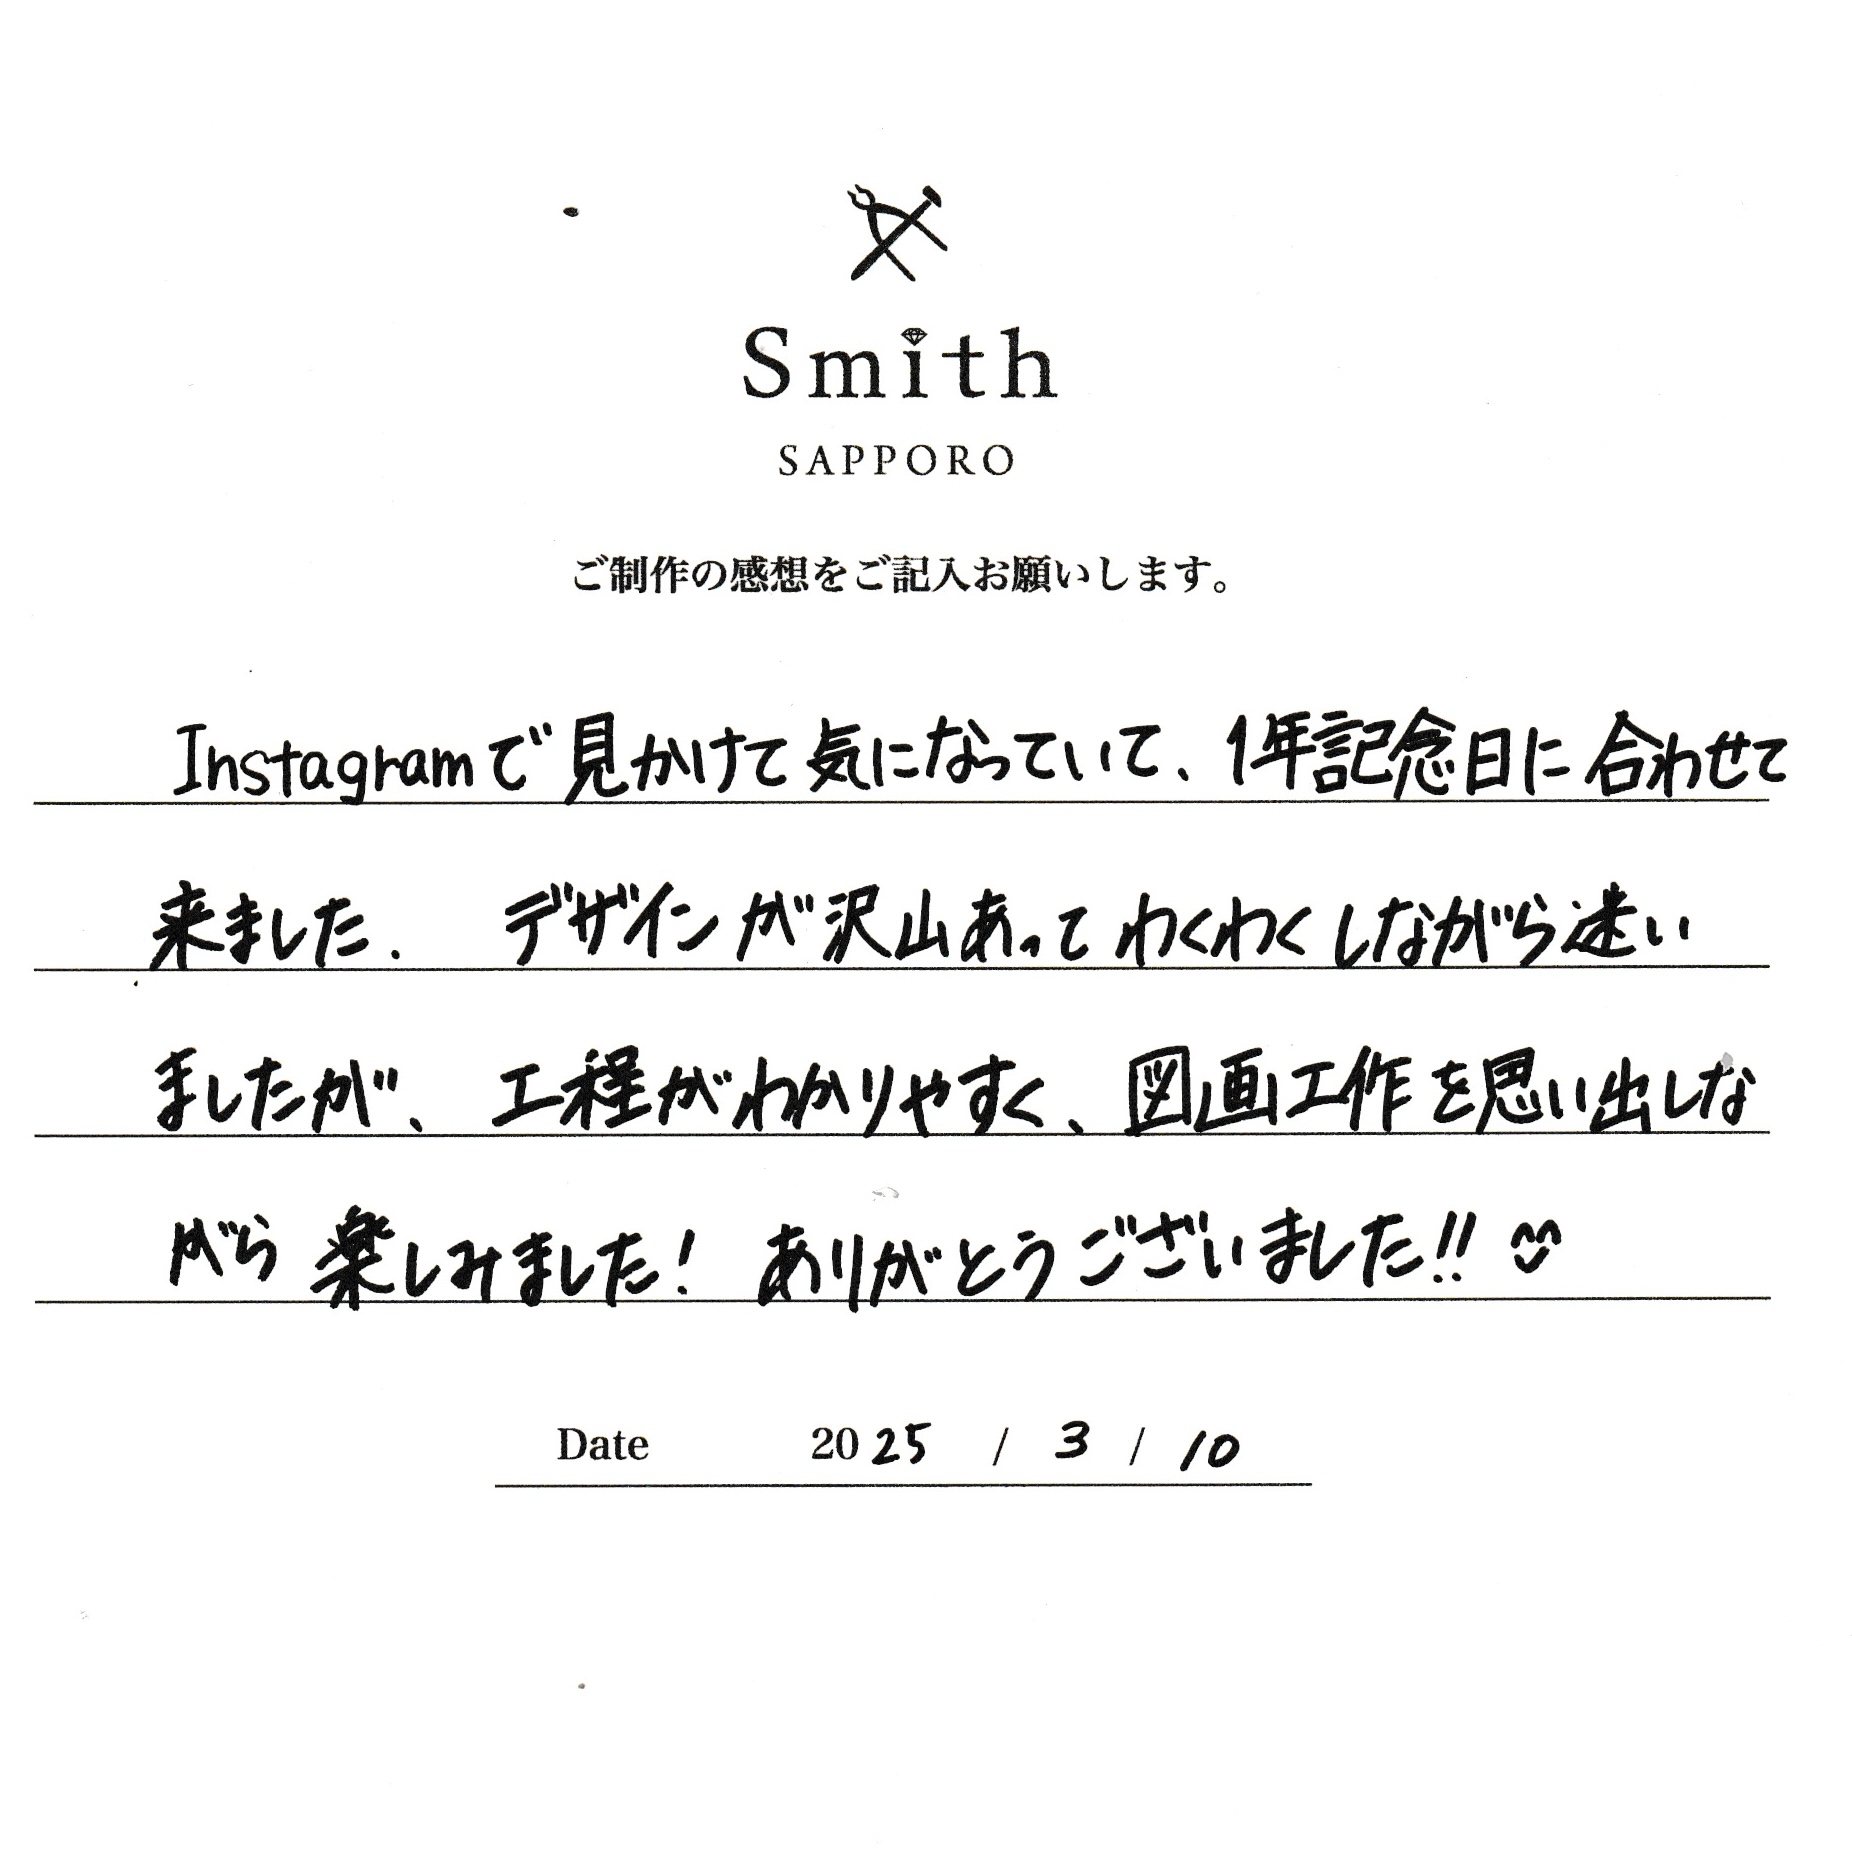 Smith
SAPPORO
ご制作の感想をご記入お願いします。
Instagramで見かけて気になっていて、1年記念日に合わせて
来ました. デザインが沢山あってわくわくしながら迷い
ましたが、工程がわかりやすく、図画工作を思い出しな
がら楽しみました! ありがとうございました!!
Date 2025 / 3 / 10